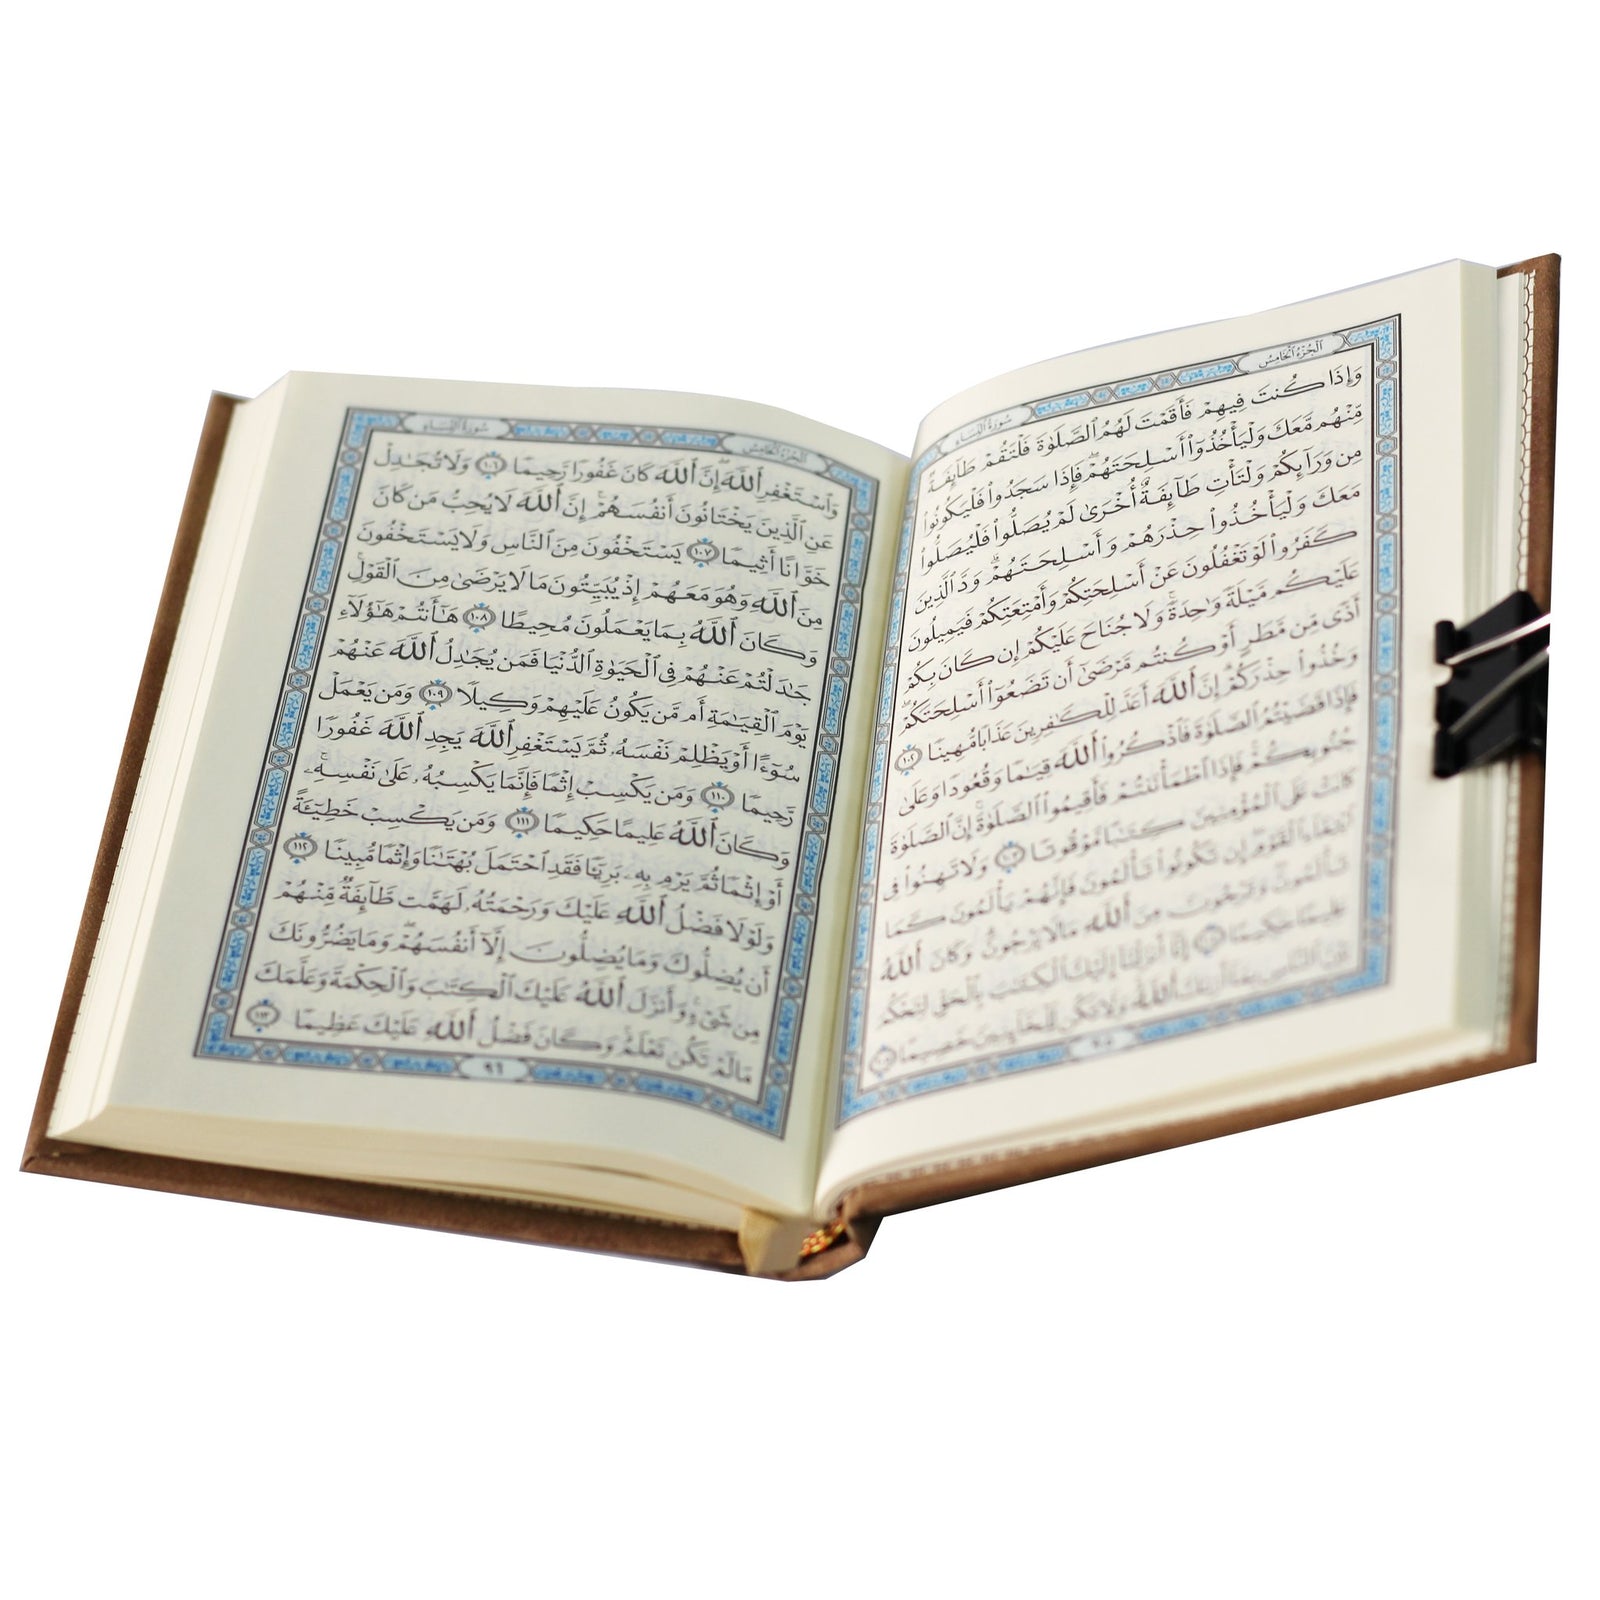 ٱلْجُزْءُ ٱلْخَامِسُ
سُورَةُ ٱلنِّسَاءِ
وَإِذَا كُنتَ فِيهِمْ فَأَقَمْتَ لَهُمُ ٱلصَّلَوٰةَ فَلْتَقُمْ طَآئِفَةٌ
مِّنْهُم مَّعَكَ وَلْيَأْخُذُوٓا۟ أَسْلِحَتَهُمْۖ فَإِذَا سَجَدُوا۟ فَلْيَكُونُوا۟
مِن وَرَآئِكُمْ وَلْتَأْتِ طَآئِفَةٌ أُخْرَىٰ لَمْ يُصَلُّوا۟ فَلْيُصَلُّوا۟
مَعَكَ وَلْيَأْخُذُوا۟ حِذْرَهُمْ وَأَسْلِحَتَهُمْۗ وَدَّ ٱلَّذِينَ
كَفَرُوا۟ لَوْ تَغْفُلُونَ عَنْ أَسْلِحَتِكُمْ وَأَمْتِعَتِكُمْ فَيَمِيلُونَ
عَلَيْكُم مَّيْلَةً وَٰحِدَةًۚ وَلَا جُنَاحَ عَلَيْكُمْ إِن كَانَ بِكُمْ
أَذًى مِّن مَّطَرٍ أَوْ كُنتُم مَّرْضَىٰٓ أَن تَضَعُوٓا۟ أَسْلِحَتَكُمْۖ
وَخُذُوا۟ حِذْرَكُمْۗ إِنَّ ٱللَّهَ أَعَدَّ لِلْكَٰفِرِينَ عَذَابًا مُّهِينًا ١٠٢
فَإِذَا قَضَيْتُمُ ٱلصَّلَوٰةَ فَٱذْكُرُوا۟ ٱللَّهَ قِيَٰمًا وَقُعُودًا وَعَلَىٰ
جُنُوبِكُمْۚ فَإِذَا ٱطْمَأْنَنتُمْ فَأَقِيمُوا۟ ٱلصَّلَوٰةَۚ إِنَّ ٱلصَّلَوٰةَ
كَانَتْ عَلَى ٱلْمُؤْمِنِينَ كِتَٰبًا مَّوْقُوتًا ١٠٣ وَلَا تَهِنُوا۟ فِى
ٱبْتِغَآءِ ٱلْقَوْمِۖ إِن تَكُونُوا۟ تَأْلَمُونَ فَإِنَّهُمْ يَأْلَمُونَ كَمَا
تَأْلَمُونَۖ وَتَرْجُونَ مِنَ ٱللَّهِ مَا لَا يَرْجُونَۗ وَكَانَ ٱللَّهُ
عَلِيمًا حَكِيمًا ١٠٤ إِنَّآ أَنزَلْنَآ إِلَيْكَ ٱلْكِتَٰبَ بِٱلْحَقِّ لِتَحْكُمَ
بَيْنَ ٱلنَّاسِ بِمَآ أَرَىٰكَ ٱللَّهُۚ وَلَا تَكُن لِّلْخَآئِنِينَ خَصِيمًا ١٠٥
٩٥
ٱلْجُزْءُ ٱلْخَامِسُ
سُورَةُ ٱلنِّسَاءِ
وَٱسْتَغْفِرِ ٱللَّهَۖ إِنَّ ٱللَّهَ كَانَ غَفُورًا رَّحِيمًا ١٠٦ وَلَا تُجَٰدِلْ
عَنِ ٱلَّذِينَ يَخْتَانُونَ أَنفُسَهُمْۚ إِنَّ ٱللَّهَ لَا يُحِبُّ مَن كَانَ
خَوَّانًا أَثِيمًا ١٠٧ يَسْتَخْفُونَ مِنَ ٱلنَّاسِ وَلَا يَسْتَخْفُونَ
مِنَ ٱللَّهِ وَهُوَ مَعَهُمْ إِذْ يُبَيِّتُونَ مَا لَا يَرْضَىٰ مِنَ ٱلْقَوْلِۚ
وَكَانَ ٱللَّهُ بِمَا يَعْمَلُونَ مُحِيطًا ١٠٨ هَٰٓأَنتُمْ هَٰٓؤُلَآءِ
جَٰدَلْتُمْ عَنْهُمْ فِى ٱلْحَيَوٰةِ ٱلدُّنْيَا فَمَن يُجَٰدِلُ ٱللَّهَ عَنْهُمْ
يَوْمَ ٱلْقِيَٰمَةِ أَم مَّن يَكُونُ عَلَيْهِمْ وَكِيلًا ١٠٩ وَمَن يَعْمَلْ
سُوٓءًا أَوْ يَظْلِمْ نَفْسَهُۥ ثُمَّ يَسْتَغْفِرِ ٱللَّهَ يَجِدِ ٱللَّهَ غَفُورًا
رَّحِيمًا ١١٠ وَمَن يَكْسِبْ إِثْمًا فَإِنَّمَا يَكْسِبُهُۥ عَلَىٰ نَفْسِهِۦۚ
وَكَانَ ٱللَّهُ عَلِيمًا حَكِيمًا ١١١ وَمَن يَكْسِبْ خَطِيٓـَٔةً
أَوْ إِثْمًا ثُمَّ يَرْمِ بِهِۦ بَرِيٓـًٔا فَقَدِ ٱحْتَمَلَ بُهْتَٰنًا وَإِثْمًا مُّبِينًا ١١٢
وَلَوْلَا فَضْلُ ٱللَّهِ عَلَيْكَ وَرَحْمَتُهُۥ لَهَمَّت طَّآئِفَةٌ مِّنْهُمْ
أَن يُضِلُّوكَ وَمَا يُضِلُّونَ إِلَّآ أَنفُسَهُمْۖ وَمَا يَضُرُّونَكَ
مِن شَىْءٍۚ وَأَنزَلَ ٱللَّهُ عَلَيْكَ ٱلْكِتَٰبَ وَٱلْحِكْمَةَ وَعَلَّمَكَ
مَا لَمْ تَكُن تَعْلَمُۚ وَكَانَ فَضْلُ ٱللَّهِ عَلَيْكَ عَظِيمًا ١١٣
٩٦